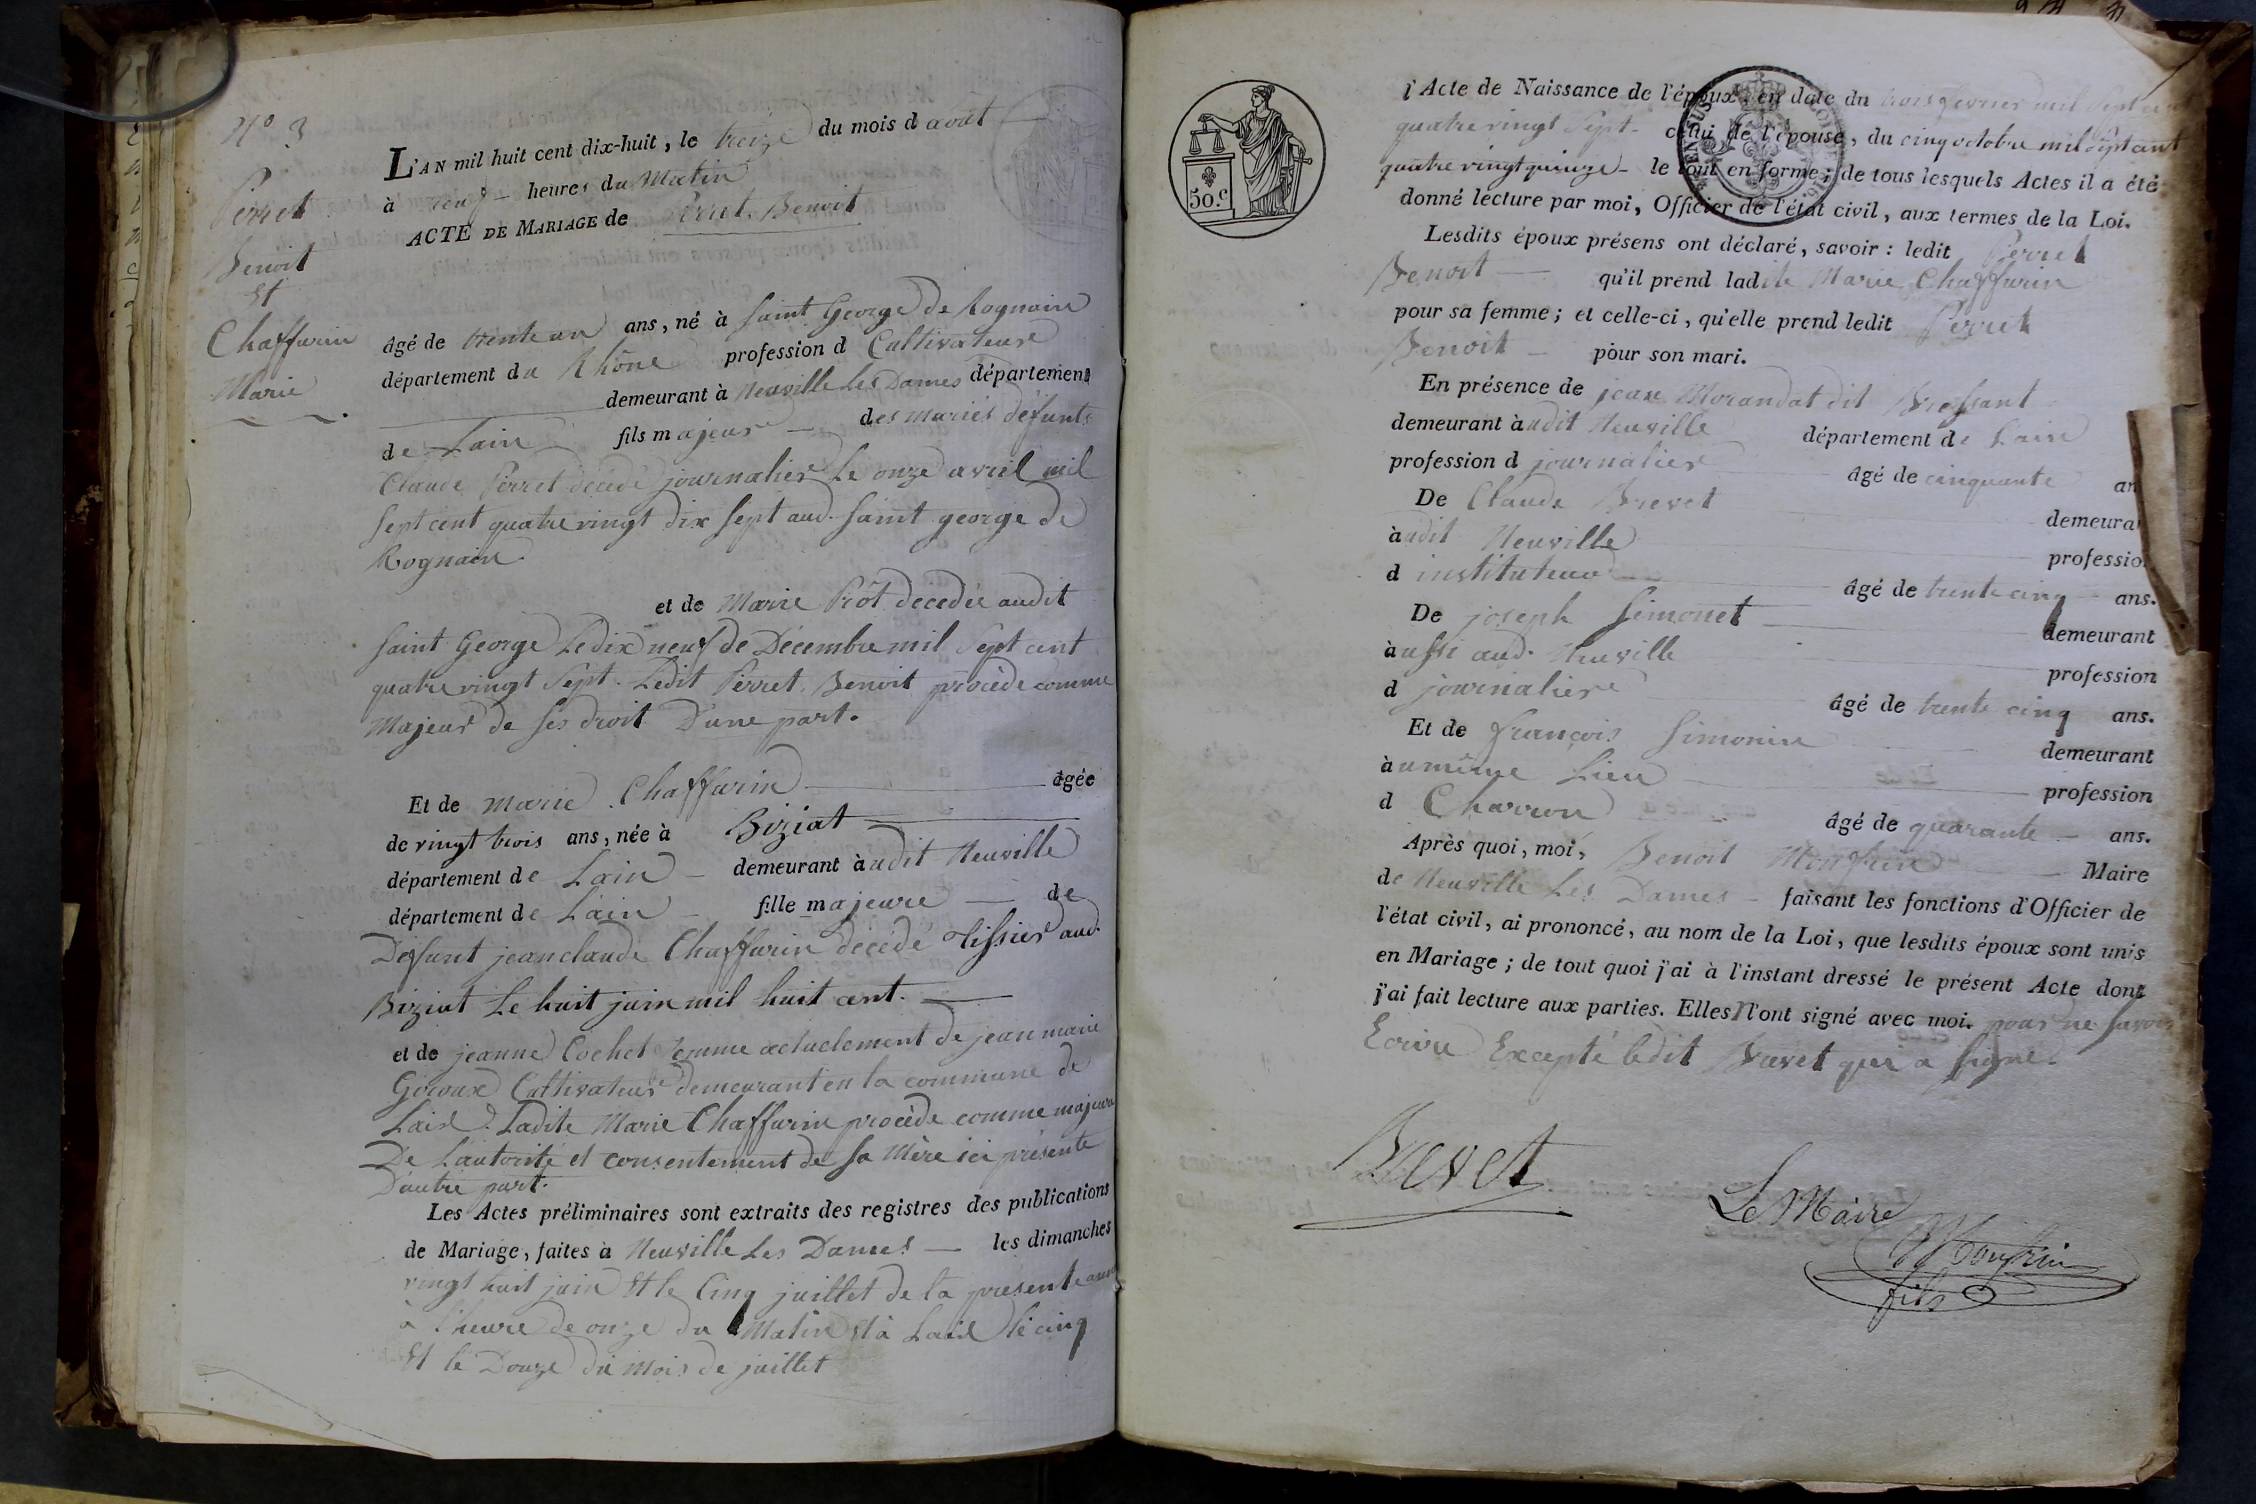 N° 3
Perret
Benoit
Et
Chaffurin
Marie
L'AN mil huit cent dix-huit, le treize du mois d août
à neuf heures du Matin
ACTE DE MARIAGE de Perret Benoit
âgé de trente un ans, né à Saint George de Rognain
département du Rhône profession d Cultivateur
demeurant à Neuville Les Dames département
de Lain fils majeur des mariés défunts
Claude Perret décédé journalier Le onze avril mil
Sept cent quatre vingt dix sept aud. Saint george de
Rognain
et de Marie Prôt decedée audit
Saint George Le dix neuf de Décembre mil Sept cent
quatre vingt Sept. Ledit Perret Benoit procède comme
Majeur de ses droit D'une part.
Et de marie Chaffurin âgée
de vingt trois ans, née à Biziat
département de Lain demeurant à udit Neuville
département de Lain fille majeure de
Defunt jeanclaude Chaffurin décédé Tissier aud.
Biziat Le huit juin mil huit cent.
et de jeanne Cochet femme actuelement de jean marie
Giroux Cultivateur demeurant en la commune de
Laid. Ladite Marie Chaffurin procède comme majeure
De L'autorité et consentement de sa Mère ici présente
D'autre part.
Les Actes préliminaires sont extraits des registres des publications
de Mariage, faites à Neuville Les Dames les dimanches
vingt huit juin Et le Cinq juillet de la présente
à l'heure de onze du Matin Et à Laid le cinq
Et le Douze du mois de juillet
50.c
l'Acte de Naissance de l'époux, en date du trois fevrier mil Sept cent
quatre vingt Sept. celui de l'épouse, du cinq octobre mil Sept cent
quatre vingt quinze le tout en forme; de tous lesquels Actes il a été
donné lecture par moi, Officier de l'état civil, aux termes de la Loi.
Lesdits époux présens ont déclaré, savoir: ledit Perret
Benoit qu'il prend ladite Marie Chaffurin
pour sa femme; et celle-ci, qu'elle prend ledit Perret
Benoit pour son mari.
En présence de jean Morandat dit Bressant
demeurant à udit Neuville département de Lain
profession d journalier âgé de cinquante an
De Claude Brevet demeura
à udit Neuville professio
d instituteur âgé de trente cinq ans.
De joseph Simonet demeurant
à ussi aud. Neuville profession
d journalier âgé de trente cinq ans.
Et de françois Simonin demeurant
à u même Lieu profession
d Charron âgé de quarante ans.
Après quoi, moi, Benoit Monfrin Maire
de Neuville Les Dames faisant les fonctions d'Officier de
l'état civil, ai prononcé, au nom de la Loi, que lesdits époux sont unis
en Mariage; de tout quoi j'ai à l'instant dressé le présent Acte dont
j'ai fait lecture aux parties. Elles n'ont signé avec moi. pour ne savoir
Ecrire Excepté ledit Brevet qui a signé.
Brevet
Le Maire
Monfrin
fils